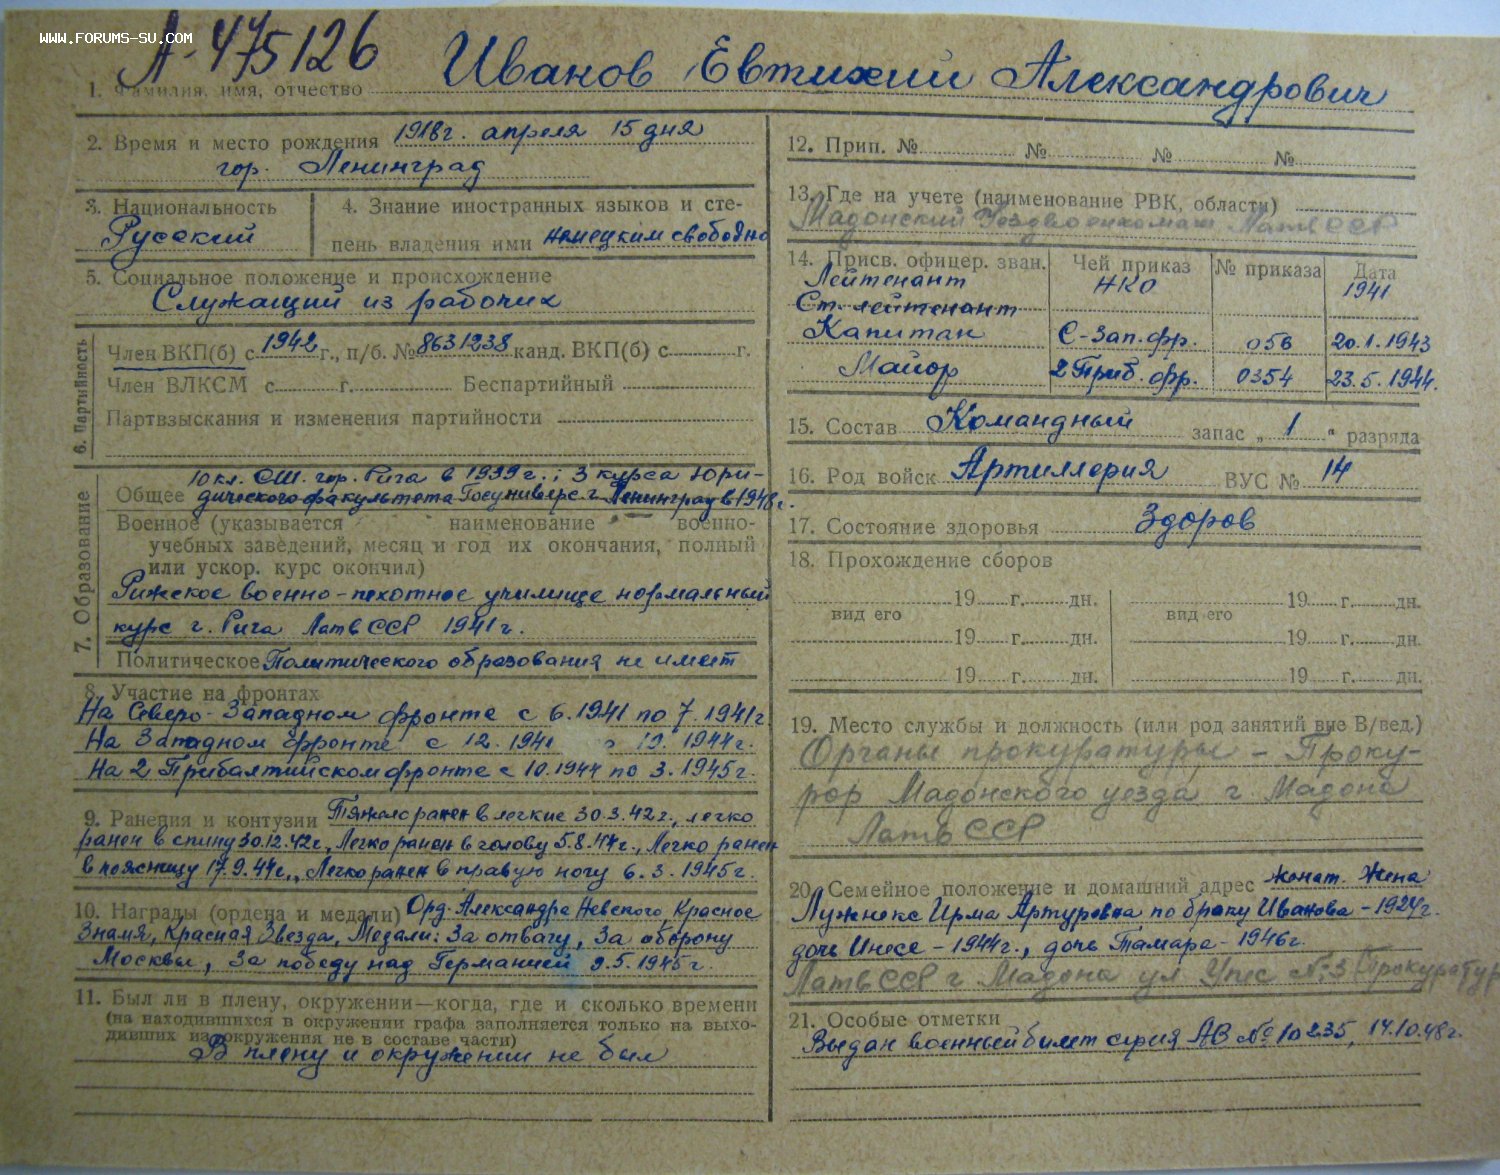 WWW.FORUMS-SU.COM
А-475126
1. Фамилия, имя, отчество Иванов Евтихий Александрович
2. Время и место рождения 1918г. апреля 15 дня
гор. Ленинград
3. Национальность
Русский
4. Знание иностранных языков и сте-
пень владения ими немецким свободно
5. Социальное положение и происхождение
Служащий из рабочих
6. Партийность
Член ВКП(б) с 1942 г., п/б. № 8631238 канд. ВКП(б) с г.
Член ВЛКСМ с г. Беспартийный
Партвзыскания и изменения партийности
7. Образование
10 кл. СШ. гор. Рига в 1939 г.; 3 курса Юри-
Общее дического факультета Госуниверс г. Ленинград в 1948г.
Военное (указывается наименование военно-
учебных заведений, месяц и год их окончания, полный
или ускор. курс окончил)
Рижское военно-пехотное училище нормальный
курс г. Рига Латв ССР 1941г.
Политическое Политического образования не имеет
8. Участие на фронтах
На Северо-Западном фронте с 6.1941 по 7.1941г.
На Западном фронте с 12.1941 10.1944г.
На 2 Прибалтийском фронте с 10.1944 по 3.1945г.
9. Ранения и контузии Тяжело ранен в легкие 30.3.42г., легко
ранен в спину 30.12.42г., Легко ранен в голову 5.8.44г., Легко ранен
в поясницу 17.9.44г., Легко ранен в правую ногу 6.3.1945г.
10. Награды (ордена и медали) Орд. Александра Невского, Красное
Знамя, Красная Звезда, Медали: За отвагу, За оборону
Москвы, За победу над Германией 9.5.1945г.
11. Был ли в плену, окружении—когда, где и сколько времени
(на находившихся в окружении графа заполняется только на выхо-
дивших из окружения не в составе части)
В плену и окружении не был
12. Прип. № № № №
13. Где на учете (наименование РВК, области)
Мадонский Уездвоенкомат Латв ССР
14. Присв. офицер. зван. Чей приказ № приказа Дата
Лейтенант НКО 1941
Ст. лейтенант
Капитан С-Зап.фр. 056 20.1.1943
Майор 2 Приб. фр. 0354 23.5.1944.
15. Состав Командный запас „ 1 " разряда
16. Род войск Артиллерия ВУС № 14
17. Состояние здоровья Здоров
18. Прохождение сборов
19 г. дн. 19 г. дн.
вид его вид его
19 г. дн. 19 г. дн.
19 г. дн. 19 г. дн.
19. Место службы и должность (или род занятий вне В/вед.)
Органы прокуратуры - Проку-
рор Мадонского уезда г. Мадона
Латв ССР
20. Семейное положение и домашний адрес женат. Жена
Лужнекс Ирма Артуровна по браку Иванова - 1924г.
дочь Инесе - 1944г., дочь Тамара - 1946г.
Латв ССР г Мадона ул Упес № 3 (Прокуратур
21. Особые отметки
Выдан военный билет серия АВ № 10235, 14.10.48г.